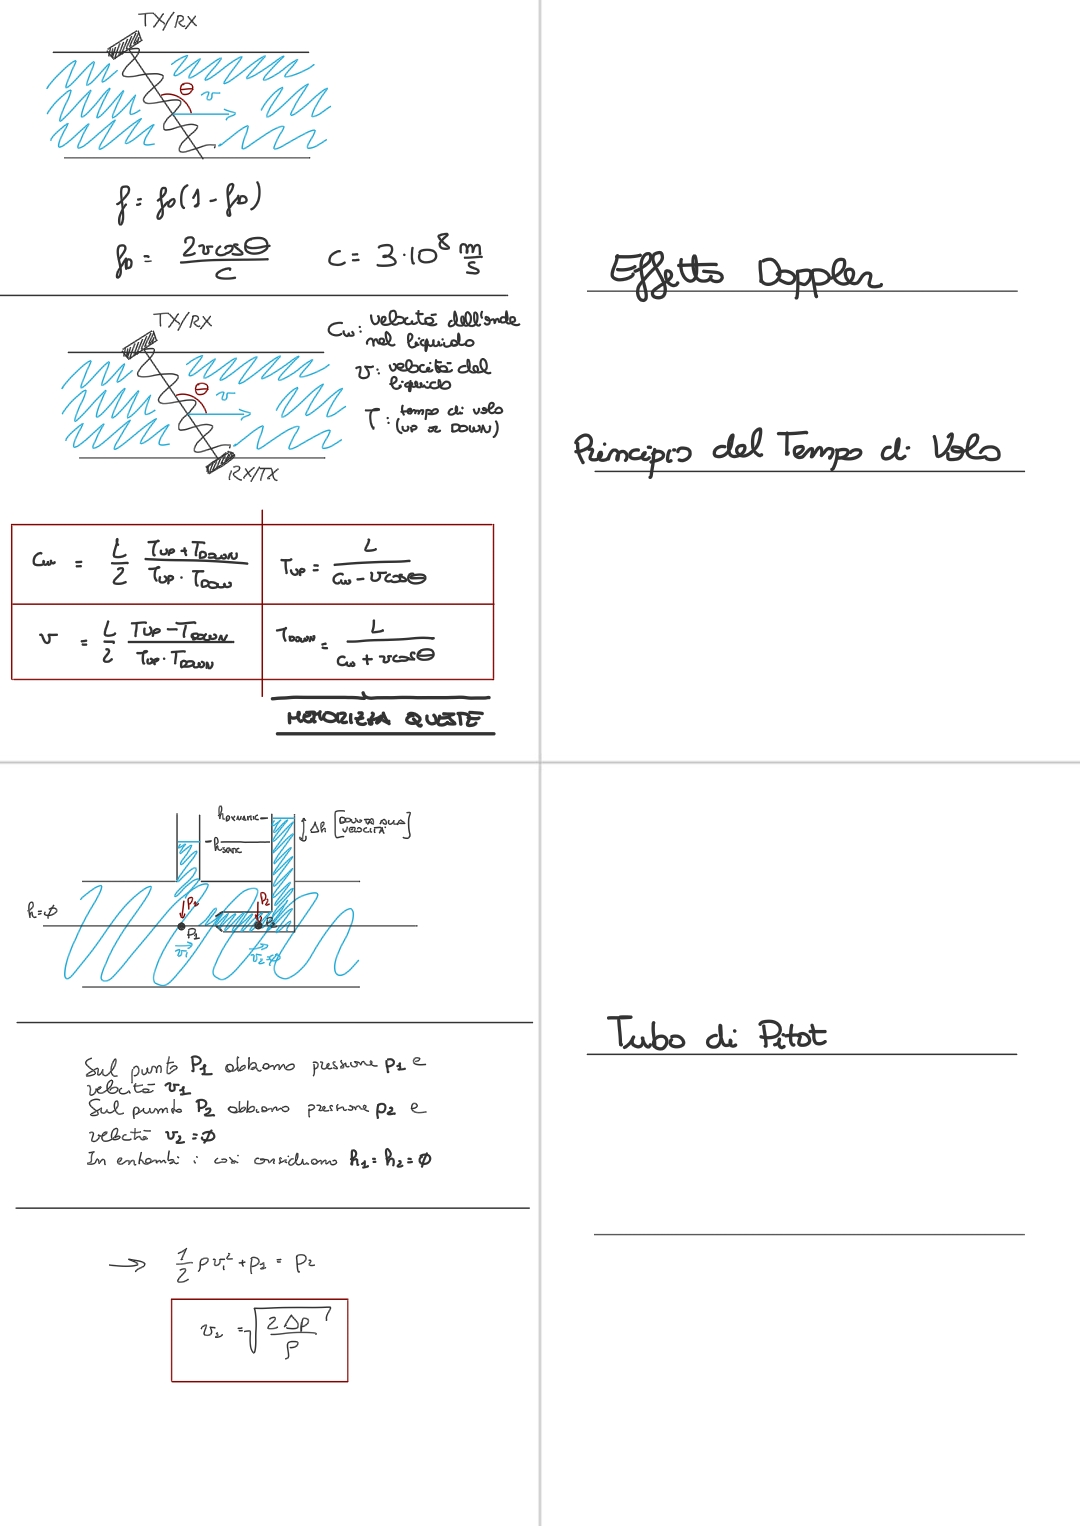 TX/RX
θ
v
f = f₀(1 - f_D)
f_D = 2vcosθ / C
C = 3·10⁸ m/s
Effetto Doppler
TX/RX
θ
v
RX/TX
Cw: velocità dell'onda
nel liquido
v: velocità del
liquido
T: tempo di volo
(UP or DOWN)
Principio del Tempo di Volo
Cw = L/2 (T_UP + T_DOWN) / (T_UP · T_DOWN)
T_UP = L / (Cw - vcosθ)
v = L/2 (T_UP - T_DOWN) / (T_UP · T_DOWN)
T_DOWN = L / (Cw + vcosθ)
MEMORIZZA QUESTE
h_DYNAMIC
Δh [DOVUTA ALLA
VELOCITÀ]
h_STATIC
h=∅
P₂
P₁
v₁
v₂=∅
Tubo di Pitot
Sul punto P₁ abbiamo pressione p₁ e
velocità v₁
Sul punto P₂ abbiamo pressione p₂ e
velocità v₂ = ∅
In entrambi i casi consideriamo h₁ = h₂ = ∅
→ 1/2 ρ v₁² + p₁ = p₂
= √(2 Δp / ρ)